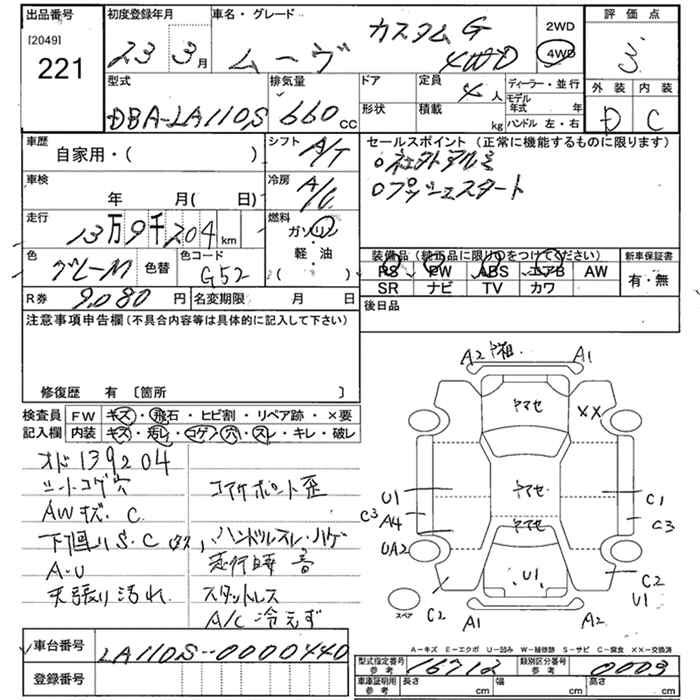 出品番号
[2049]
221
初度登録年月
23 3月
車名・グレード
ムーヴ カスタムG 4WD
2WD
4WD
評価点
3
外装 内装
D C
型式
DBA-LA110S
排気量
660 cc
ドア
形状
定員
4人
積載
kg
ディーラー・並行
モデル年式 年
ハンドル 左・右
車歴
自家用・( )
シフト
A/T
車検
年 月( 日)
冷房
A/C
走行
13万9千204 km
燃料
ガソリン
軽・油
( )
色
グレーM
色替
色コード
G52
R券
9,080円
名変期限 月 日
セールスポイント (正常に機能するものに限ります)
○社外アルミ
○プッシュスタート
装備品 (純正品に限り○をつけてください)
PS PW ABS エアB AW
SR ナビ TV カワ
新車保証書
有・無
後日品
注意事項申告欄 (不具合内容等は具体的に記入して下さい)
修復歴 有 〔箇所 〕
検査員 FW キズ・飛石・ヒビ割・リペア跡・×要
記入欄 内装 キズ・汚レ・コゲ・穴・スレ・キレ・破レ
オド139204
シートコゲ穴
AWキズ.C
下回りS.C
A-U
天張り汚れ
コアサポート歪
ハンドルスレ・ハゲ
走行時音
スタットレス
A/C冷えず
A2 A1
ヤマセ
XX
U1
ヤマセ
C1
C3
A4
C3
ヤマセ
UA2
U1
C2
C2
U1
スペア
A1
A2
A-キズ E-エクボ U-凹み W-補修跡 S-サビ C-腐食 XX-交換済
車台番号
LA110S-0000440
登録番号
型式指定番号 参考
16712
類別区分番号 参考
0003
車庫証明用 参考
長さ cm
幅 cm
高さ cm